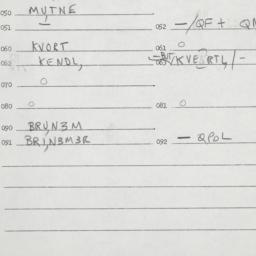 050 MU,TNE
051 — 052 —/QF + QM
060 KVORT 061 O
062 KENDL, 063 —BUT/KVE?RTL, /-
070 O
080 O 081 O
090 BRU,N3M
091 BRI,N3M3R 092 — QPOL